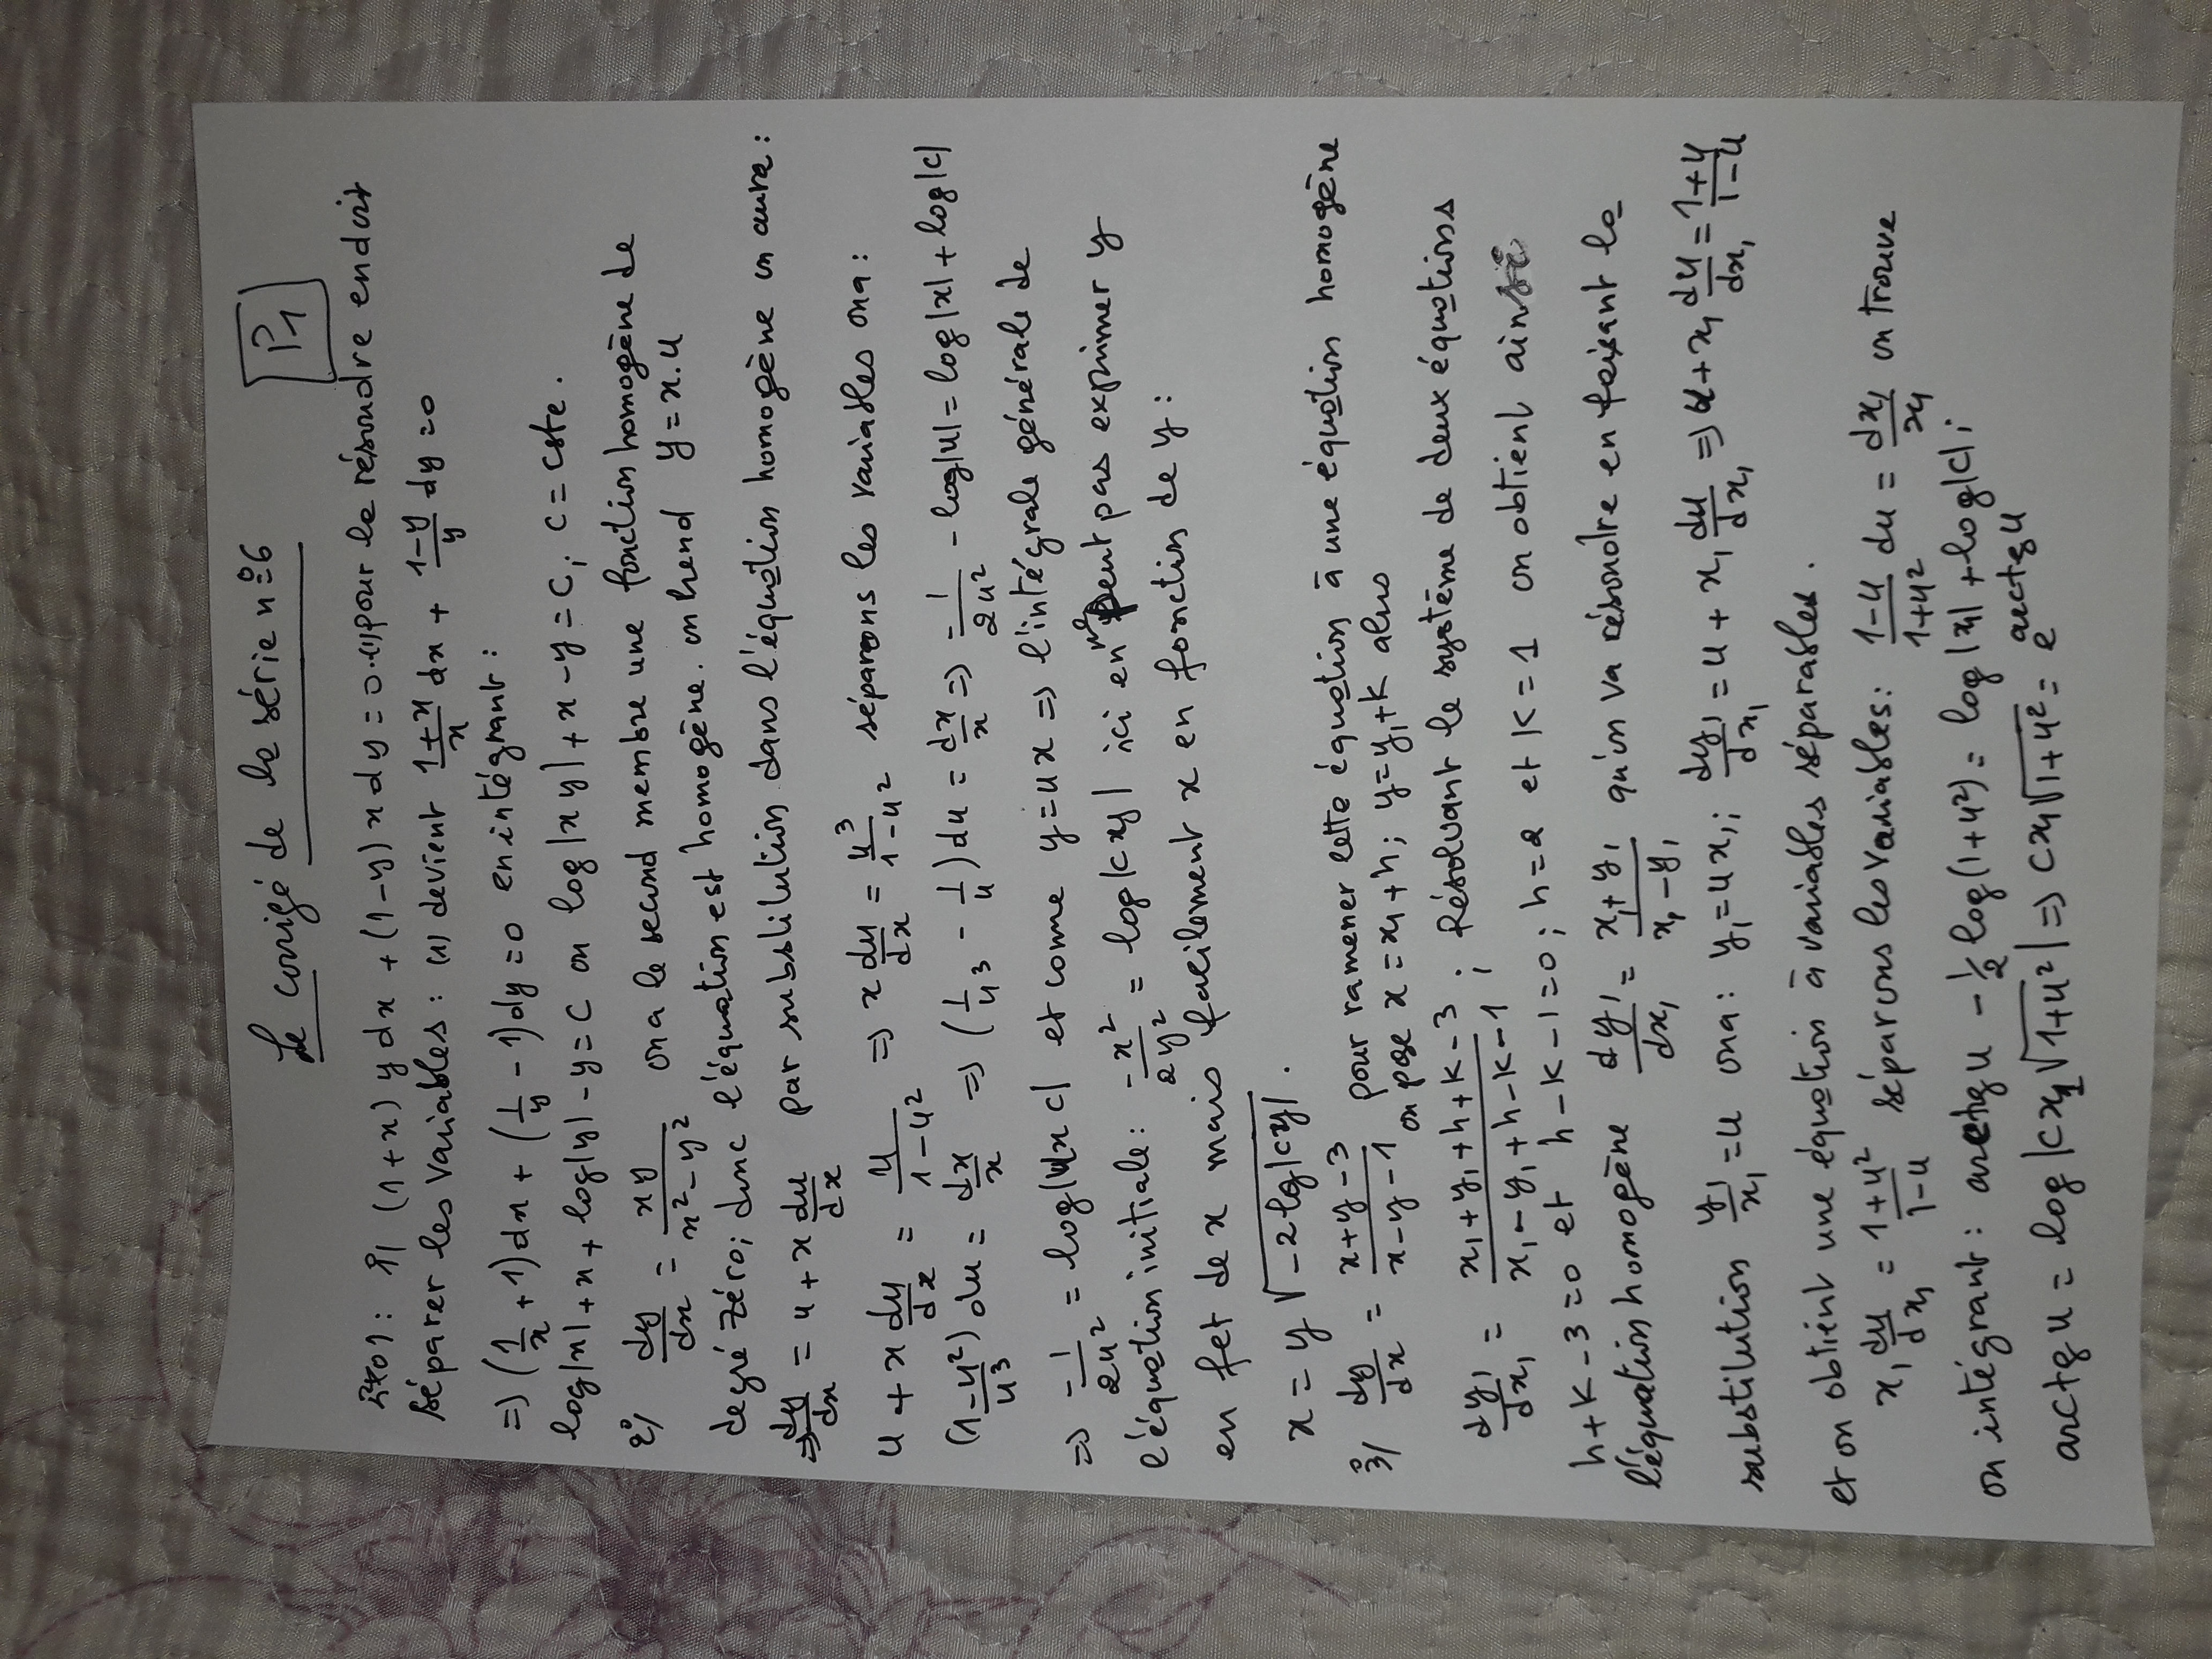 Le corrigé de la série n°6
P1
Exo1: 1°/ (1+x)ydx + (1-y)xdy = 0..(1) pour la résoudre on doit
séparer les variables : (1) devient \frac{1+x}{x}dx + \frac{1-y}{y}dy = 0
=> (\frac{1}{x}+1)dx + (\frac{1}{y}-1)dy = 0 en intégrant :
log|x| + x + log|y| - y = C ou log|xy| + x - y = C, C = cste.
2°/ \frac{dy}{dx} = \frac{xy}{x²-y²} on a le second membre une fonction homogène de
degré zéro; donc l'équation est homogène. on prend y = x.u
=> \frac{dy}{dx} = u + x\frac{du}{dx} par substilution dans l'équation homogène on aura :
u + x\frac{du}{dx} = \frac{u}{1-u²} => x\frac{du}{dx} = \frac{u³}{1-u²} séparons les variables on a :
\frac{(1-u²)}{u³}du = \frac{dx}{x} => (\frac{1}{u³} - \frac{1}{u})du = \frac{dx}{x} => -\frac{1}{2u²} - log|u| = log|x| + log|c|
=> -\frac{1}{2u²} = log|uxc| et comme y = ux => l'intégrale générale de
l'équation initiale : -\frac{x²}{2y²} = log|cy| ici en ne peut pas exprimer y
en fct de x mais facilement x en fonction de y :
x = y\sqrt{-2log|cy|}.
3°/ \frac{dy}{dx} = \frac{x+y-3}{x-y-1} pour ramener cette équation à une équation homogène
on pose x = x₁+h ; y = y₁+k alors
\frac{dy₁}{dx₁} = \frac{x₁+y₁+h+k-3}{x₁-y₁+h-k-1} ; Résolvant le système de deux équations
h+k-3=0 et h-k-1=0 ; h=2 et k=1 on obtient ainsi
l'équation homogène \frac{dy₁}{dx₁} = \frac{x₁+y₁}{x₁-y₁} qu'on va résoudre en faisant la
substilution \frac{y₁}{x₁} = u on a : y₁ = ux₁ ; \frac{dy₁}{dx₁} = u + x₁\frac{du}{dx₁} => u + x₁\frac{du}{dx₁} = \frac{1+u}{1-u}
et on obtient une équation à variables séparables.
x₁\frac{du}{dx₁} = \frac{1+u²}{1-u} séparons les variables : \frac{1-u}{1+u²}du = \frac{dx₁}{x₁} on trouve
on intégrant : arctgu - ½log(1+u²) = log|x₁| + log|c| ;
arctgu = log|cx₁\sqrt{1+u²}| => cx₁\sqrt{1+u²} = e^{arctgu}